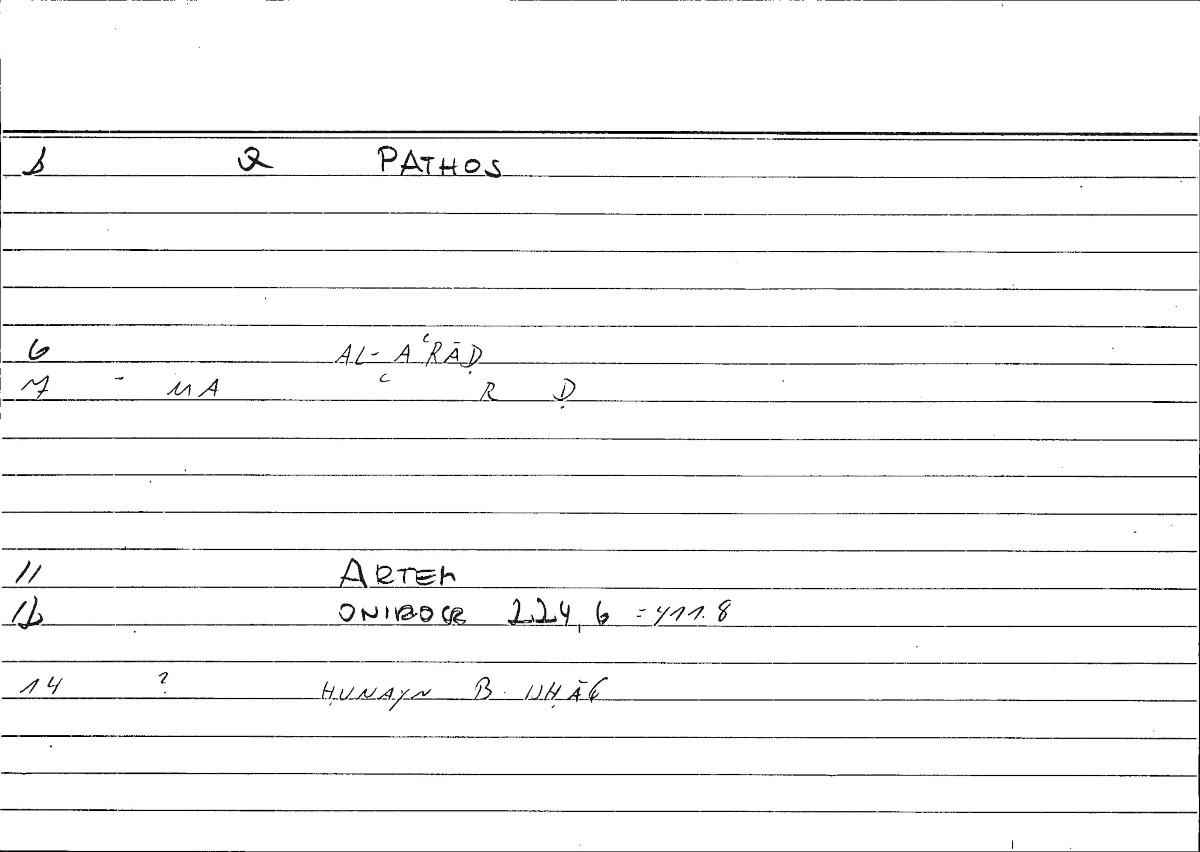 PATHOS
6 AL-AʿRĀḌ
7 - MA ʿ R Ḍ
11 ARTEM
12 ONIROCR 224,6 = 411.8
14 ? ḤUNAYN B. ISḤĀQ